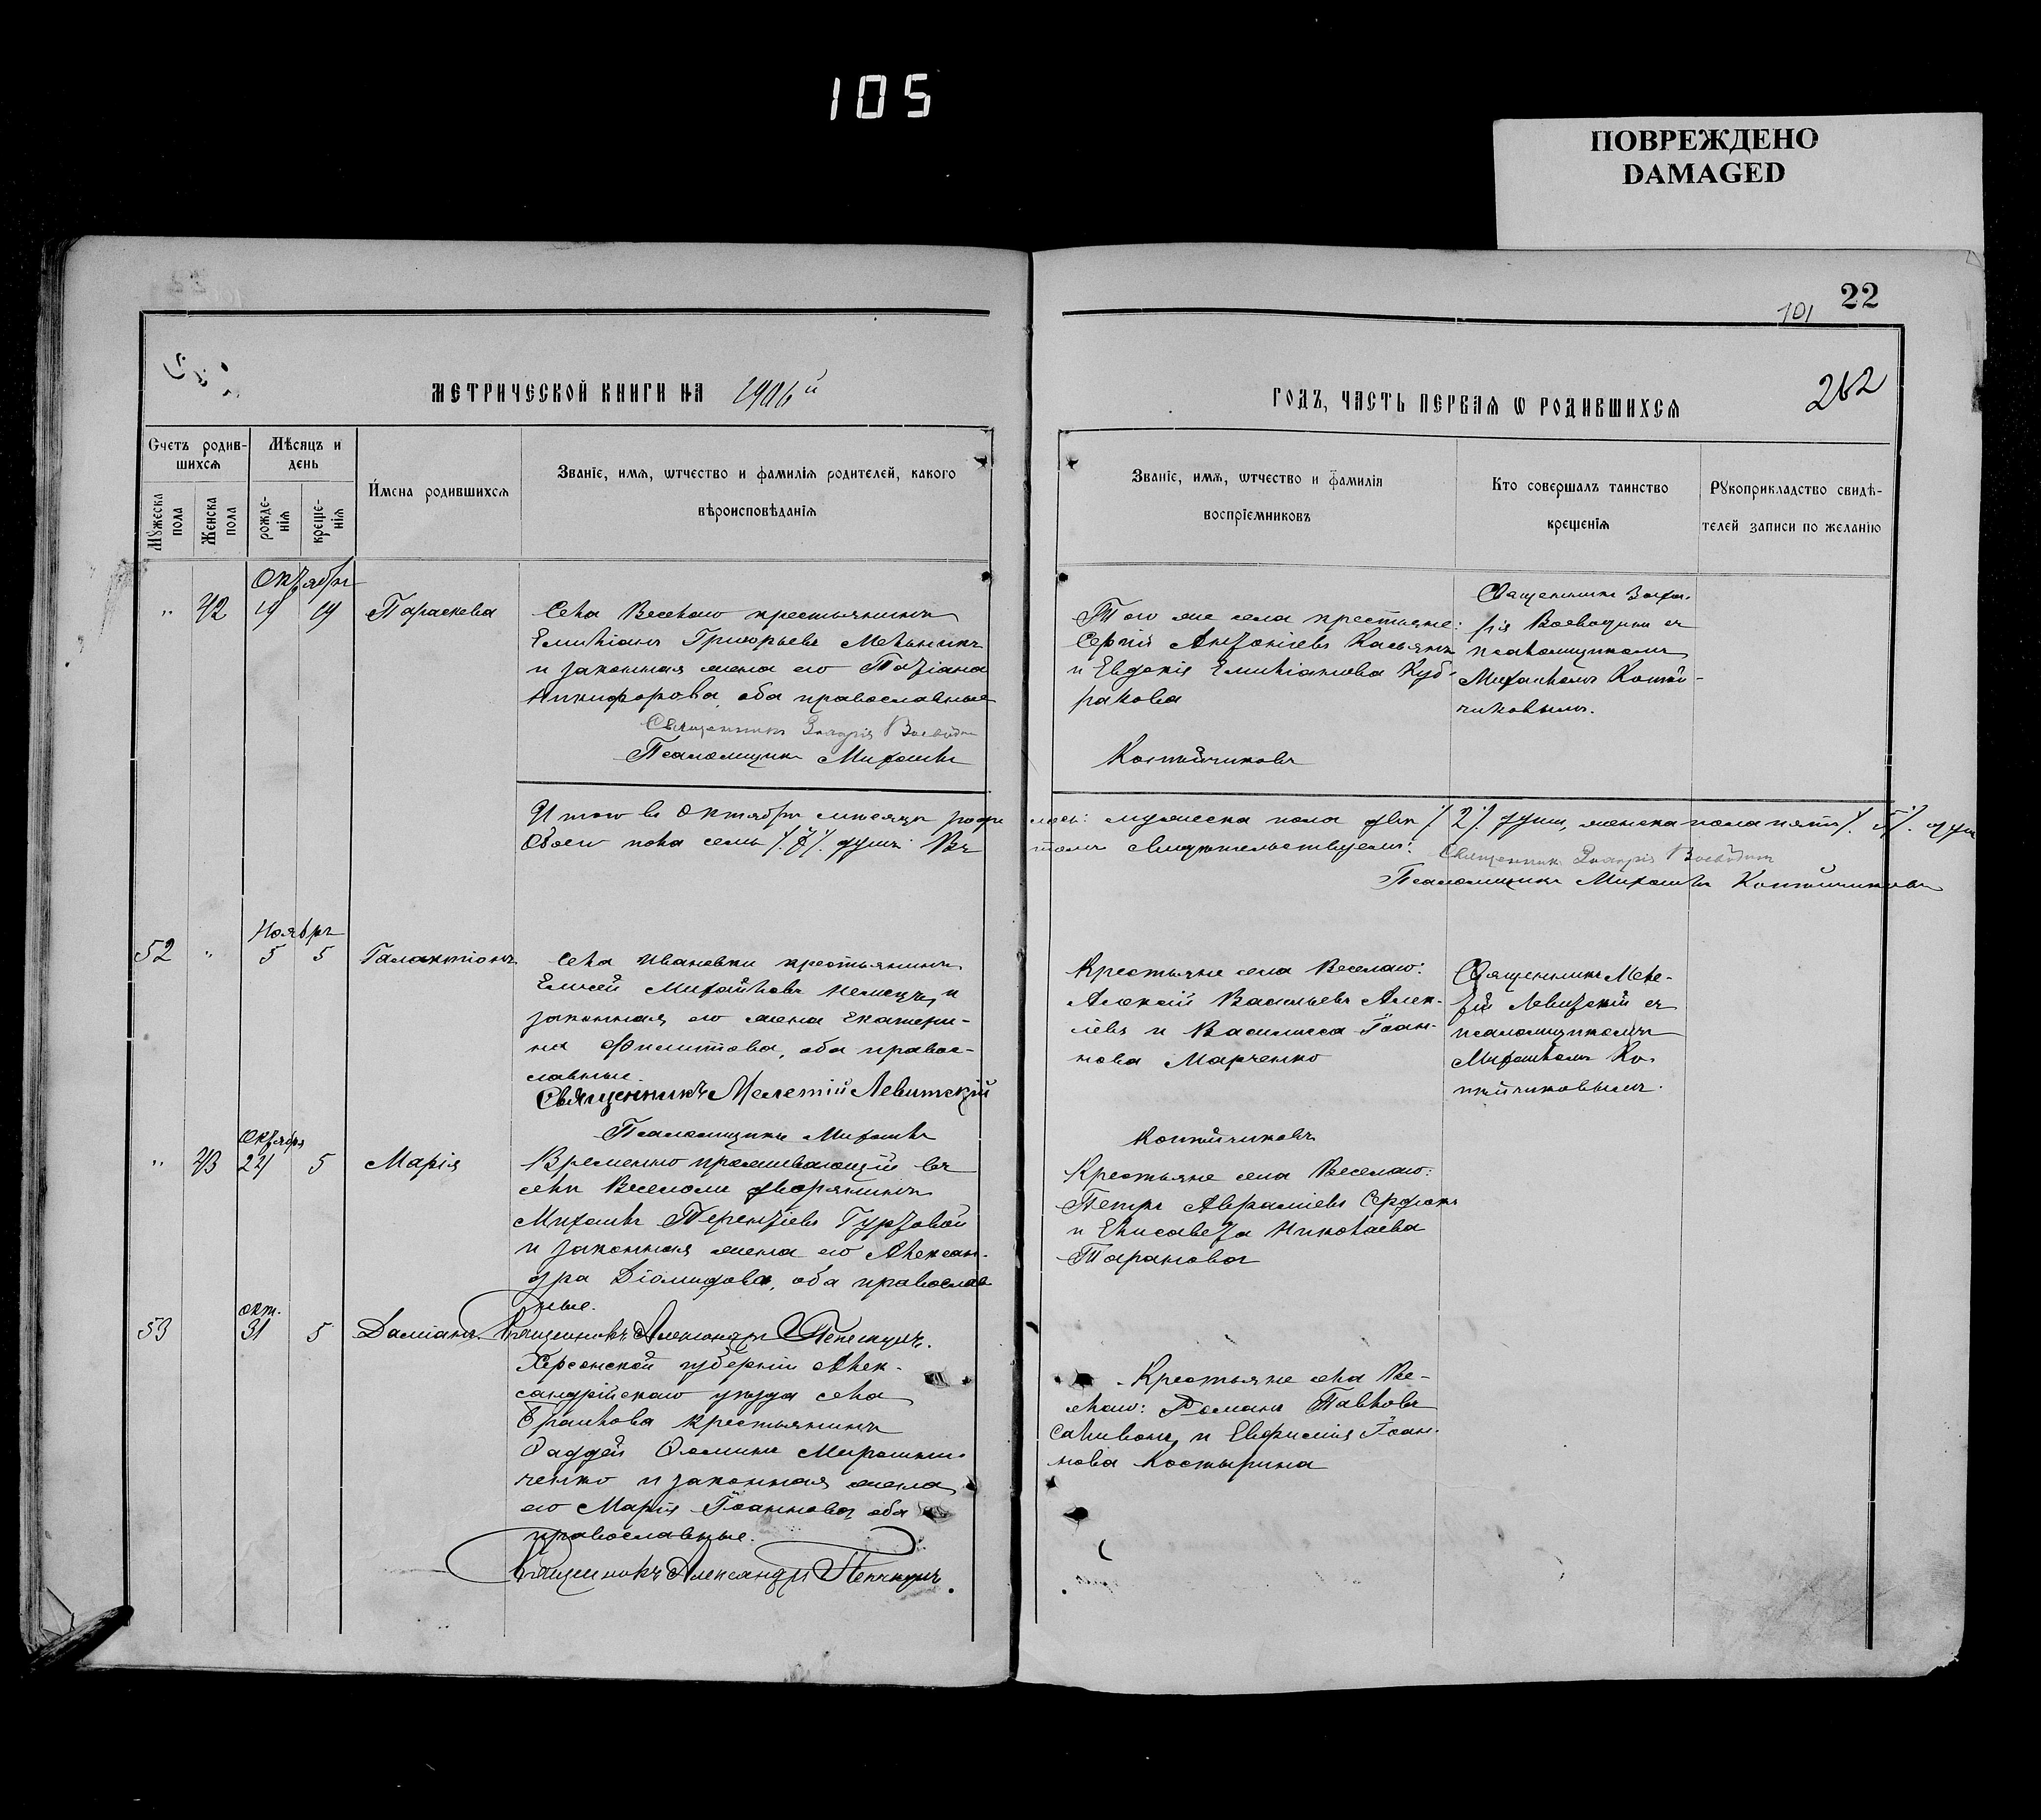 105
ПОВРЕЖДЕНО
DAMAGED
22
101
262
МЕТРИЧЕСКОЙ КНИГИ НА 1906й
ГОДЪ, ЧАСТЬ ПЕРВАЯ Ѡ РОДИВШИХСЯ
Счетъ родив-
шихся
Мѣсяцъ и
день
Мужеска
пола
Женска
пола
рожде-
нія
креще-
нія
Имена родившихся
Званіе, имя, ѡтчество и фамилія родителей, какого
вѣроисповѣданія
Званіе, имя, ѡтчество и фамилія
воспріемниковъ
Кто совершалъ таинство
крещенія
Рукоприкладство свидѣ-
телей записи по желанію
Октябрь
" 42 19 19 Параскева
Села Веселаго крестьянинъ
Емиліанъ Григорьевъ Мельникъ
и законная жена его Татіана
Никифорова, оба православные
Священникъ Захарія Воеводинъ
Псаломщикъ Михаилъ
Того же села крестьяне:
Сергій Антоніевъ Касьянъ
и Евдокія Емиліанова Куд-
ракова
Костѣйчиковъ
Священникъ Заха-
рія Воеводинъ съ
псаломщикомъ
Михаиломъ
чиковымъ.
Итого въ Октябрѣ мѣсяцѣ роди лось: мужеска пола двѣ /. 2 /. души, женска пола пять /. 5 /. душ
Обоего пола семь /. 7 /. душъ. Въ томъ свидѣтельствуемъ: Священникъ Захарія Воеводинъ
Псаломщикъ Михаилъ
Ноябрь
52 " 5 5 Галактіонъ
Села Ивановки крестьянинъ
Елисей Михайловъ Немецъ и
законная его жена Екатери-
на Филиппова, оба правос-
лавные.
Священникъ Мелетій Левитскій
Псаломщикъ Михаилъ
Крестьяне села Веселаго:
Алексій Васильевъ Алек-
сіевъ и Василисса Іоан-
нова Марченко
Священникъ Меле-
тій Левитскій съ
псаломщикомъ
Михаиломъ
Октября
" 43 24 5 Марія
Временно проживающій въ
селѣ Веселомъ дворянинъ
Михаилъ Терентіевъ Гуртовой
и законная жена его Алексан-
дра Діомидова, оба православ
ные.
Священникъ Александръ
Крестьяне села Веселаго:
Петръ Авраміевъ Сердюкъ
и Елисавета Николаева
Таранова
окт.
53 31 5 Даміанъ
Херсонской губерніи Алек-
сандрійскаго уѣзда села
Браилова крестьянинъ
Фаддей Ѳоминъ Мирошни-
ченко и законная жена
его Марія Іоаннова, оба
православные.
Священникъ Александръ
Крестьяне села Ве-
селаго: Романъ Павловъ
Саливонъ и Евфимія Іоан-
нова Костырина